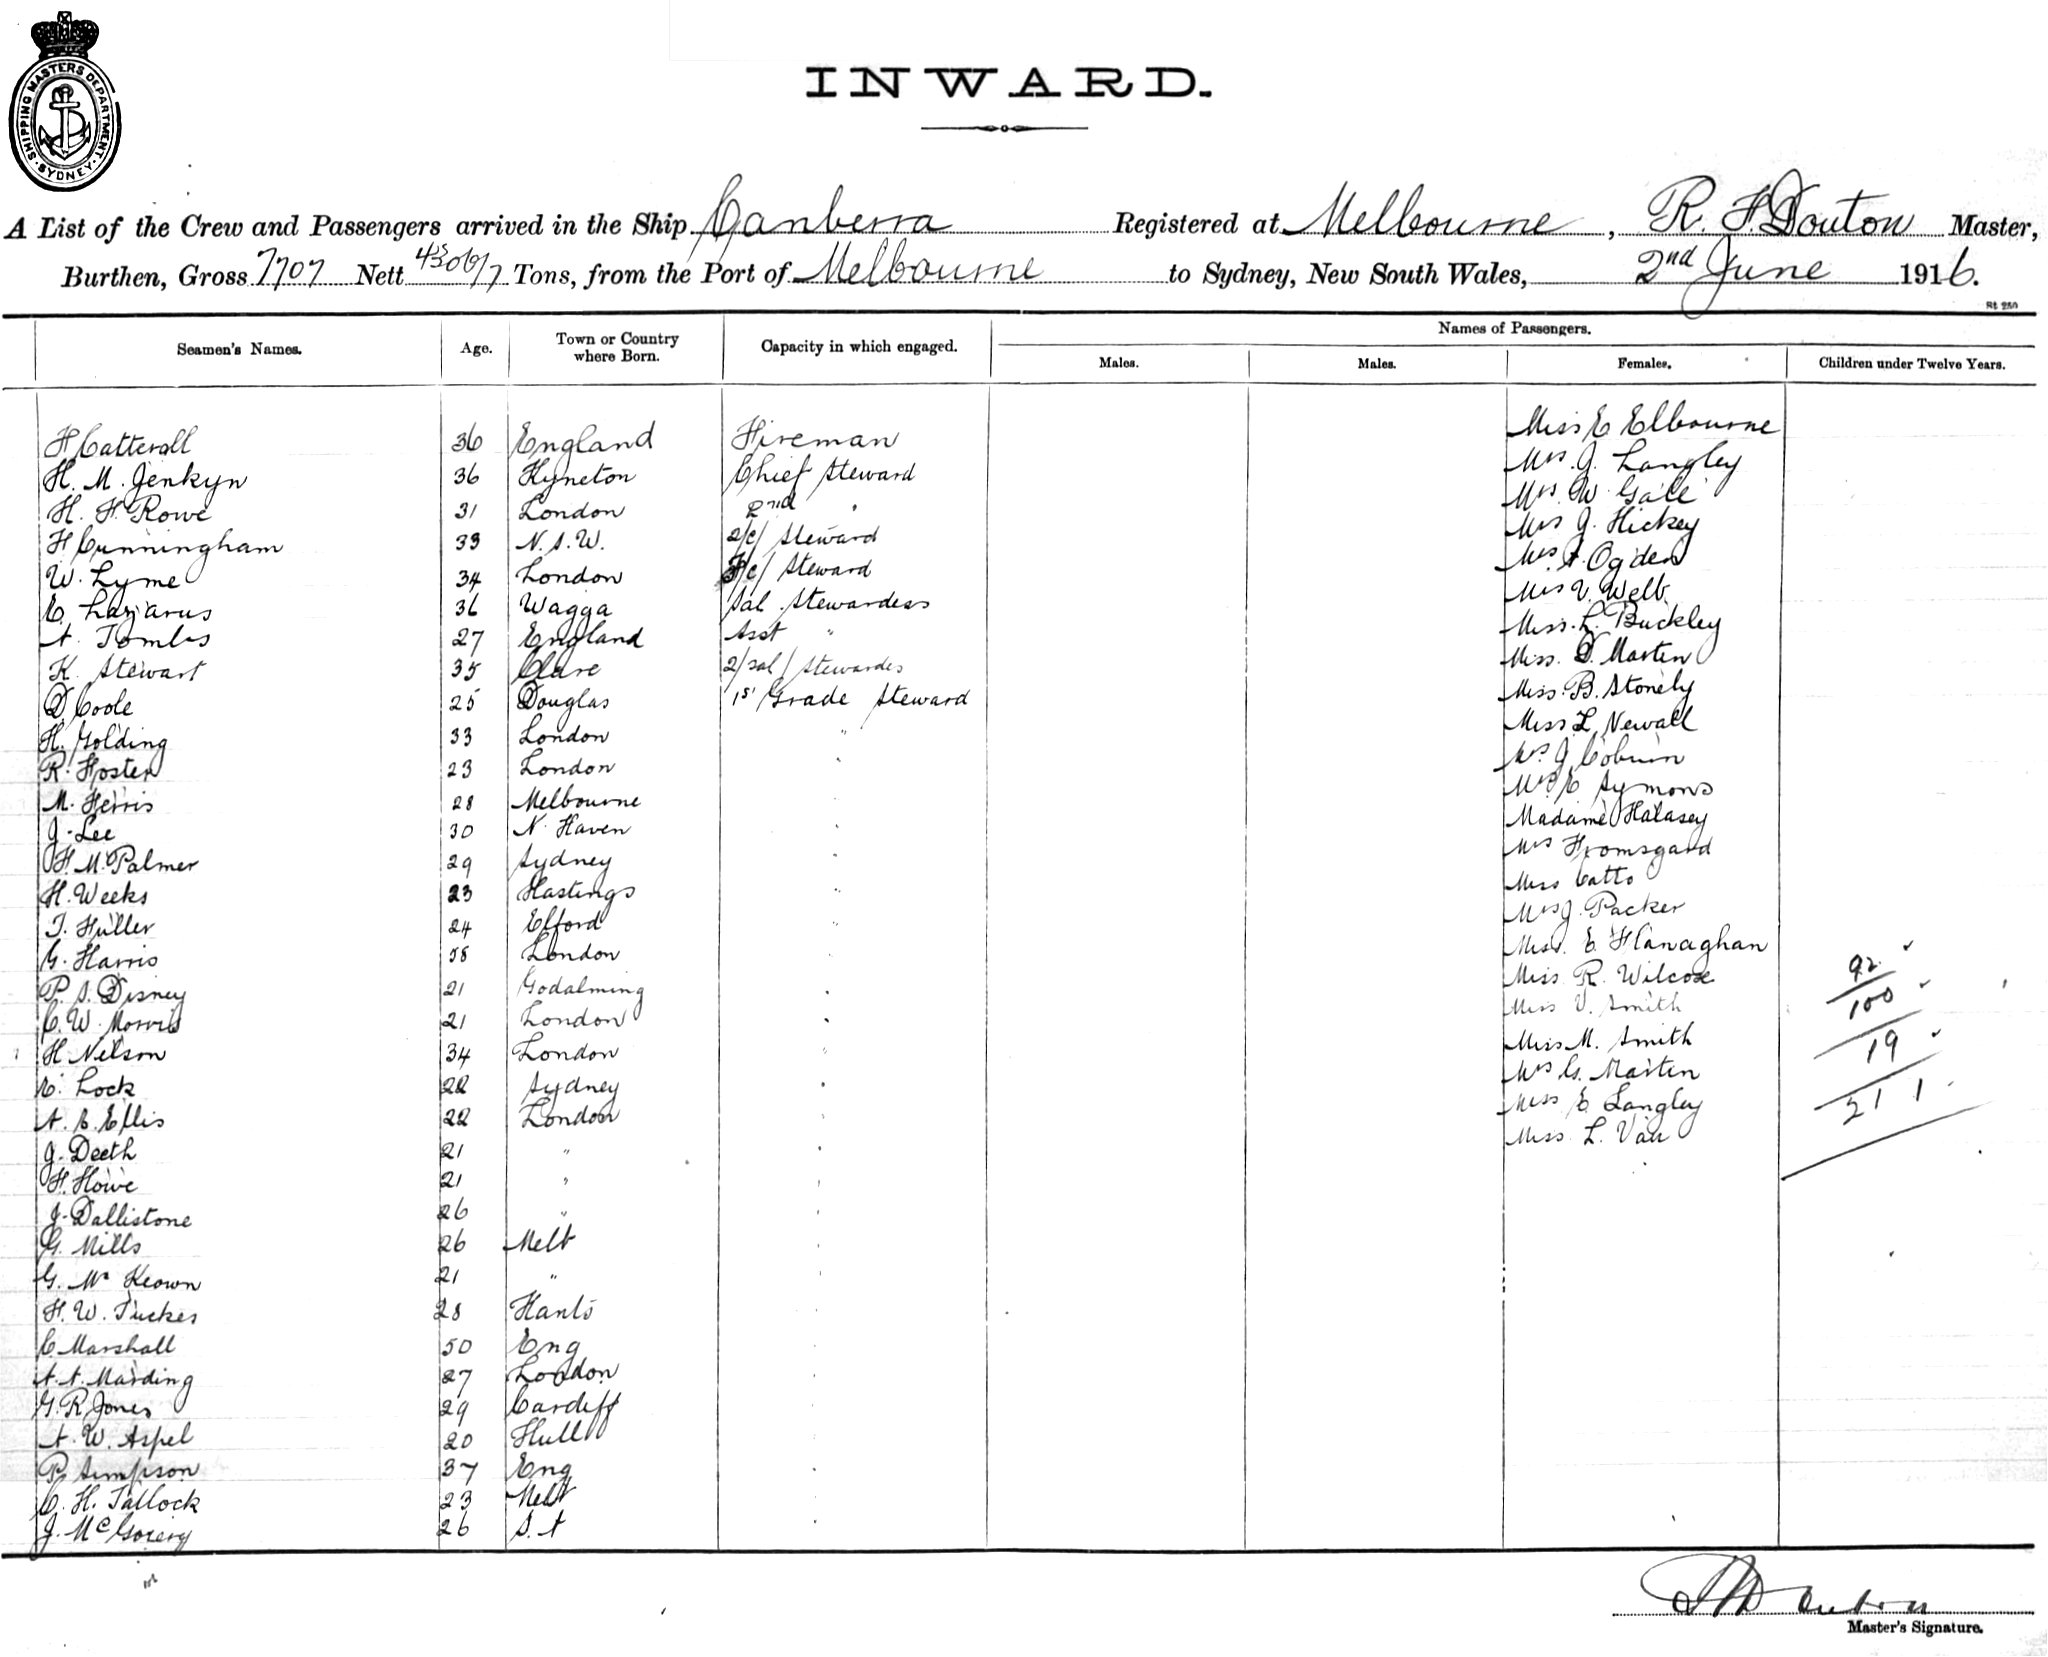 SHIPPING MASTERS DEPARTMENT · SYDNEY ·
INWARD.
A List of the Crew and Passengers arrived in the Ship Canberra Registered at Melbourne, R. F. Douton Master,
Burthen, Gross 7707 Nett Tons, from the Port of Melbourne to Sydney, New South Wales, 2nd June 1916.
Rt 250
Seamen's Names. Age. Town or Country where Born. Capacity in which engaged. Names of Passengers.
Males. Males. Females. Children under Twelve Years.
F Catterall 36 England Fireman Miss E Elbourne
H. M. Jenkyn 36 Kyneton Chief Steward Mrs. J. Langley
H. F. Rowe 31 London 2nd " Mrs. W. Gale
F Cunningham 33 N.S.W. 2/c/ Steward Mrs J. Hickey
W. Lyme 34 London /c/ Steward Mrs A. Ogden
E. Lazarus 36 Wagga Sal. Stewardess Mrs V. Welb.
A. Tombs 27 England Asst " Miss. L. Buckley
K. Stewart 35 Clare 2/sal/ Stewardes Miss. D. Martin
D Coole 25 Douglas 1st Grade Steward Miss. B. Stonely
H. Golding 33 London " Miss L. Newall
R. Foster 23 London " Mrs. J. Coburn
M. Ferris 28 Melbourne Mrs. E Symons
J. Lee 30 N. Haven " Madame Halasey
F. M. Palmer 29 Sydney " Mrs Fromsgard
H. Weeks 23 Hastings " Miss Catto
T. Fuller 24 Elford " Mrs J. Packer
G. Harris 58 London " Miss. E. Flanaghan
P. S. Disney 21 Godalming " Miss R. Wilcox 92
C. W. Morris 21 London " Miss V. Smith 100
H Nelson 34 London " Miss M. Smith 19
E. Lock 22 Sydney " Mrs G. Martin
A. E. Ellis 22 London " Miss E Langley 211
J. Deeth 21 " " Miss. L. Vau
F. Howe 21 " "
J. Dallistone 26 " "
G. Mills 26 Melb "
G. Mc Keown 21 " "
F. W. Tucker 28 Hants "
C. Marshall 50 Eng "
A. A. Marding 27 London "
G. R. Jones 29 Cardiff "
A. W. Aspel 20 Hull "
P. Simpson 37 Eng "
C. H. Tallock 23 Melb "
J. Mc 26 S. A "
Master's Signature.